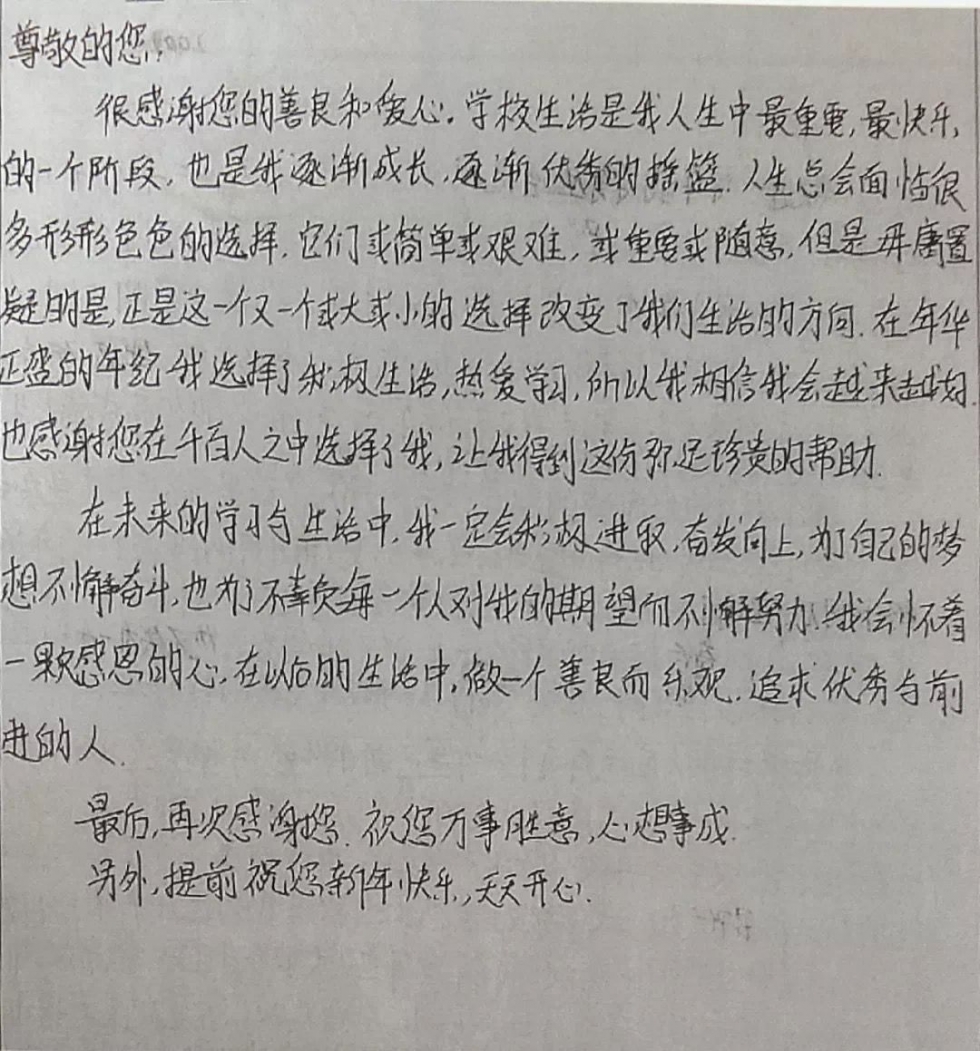 尊敬的您:
很感谢您的善良和爱心。学校生活是我人生中最重要,最快乐,
的一个阶段,也是我逐渐成长,逐渐优秀的摇篮.人生总会面临很
多形形色色的选择.它们或简单或艰难,或重要或随意,但是毋庸置
疑的是,正是这一个又一个或大或小的选择改变了我们生活的方向.在年华
正盛的年纪我选择了积极生活,热爱学习,所以我相信我会越来越好.
也感谢您在千百人之中选择了我,让我得到这份弥足珍贵的帮助.
在未来的学习与生活中,我一定会积极进取,奋发向上,为了自己的梦
想不懈奋斗,也为了不辜负每一个人对我的期望而不懈努力.我会怀着
一颗感恩的心,在以后的生活中,做一个善良而乐观.追求优秀与前
进的人.
最后,再次感谢您.祝您万事胜意,心想事成.
另外,提前祝您新年快乐,天天开心.